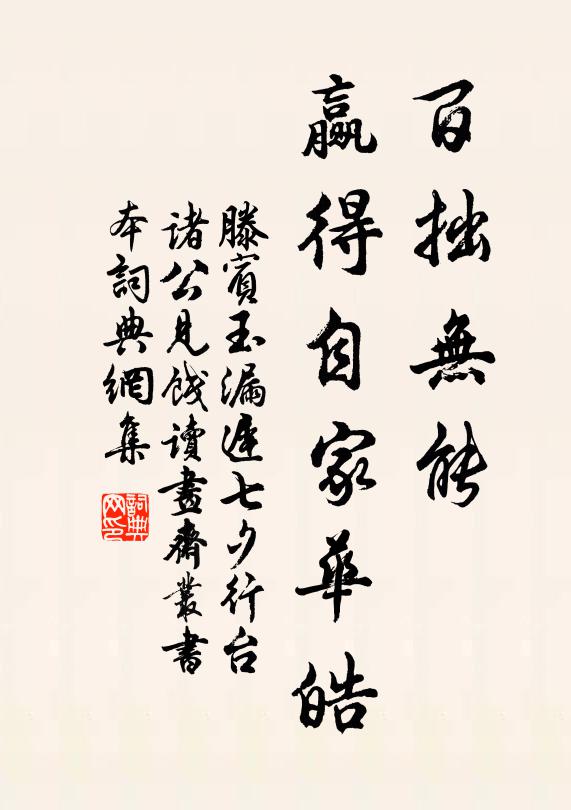 百拙無能
贏得自家華皓
滕賓玉漏遲七夕行台
諸公見餞讀畫齋叢書
本詞典網集
詞典网印